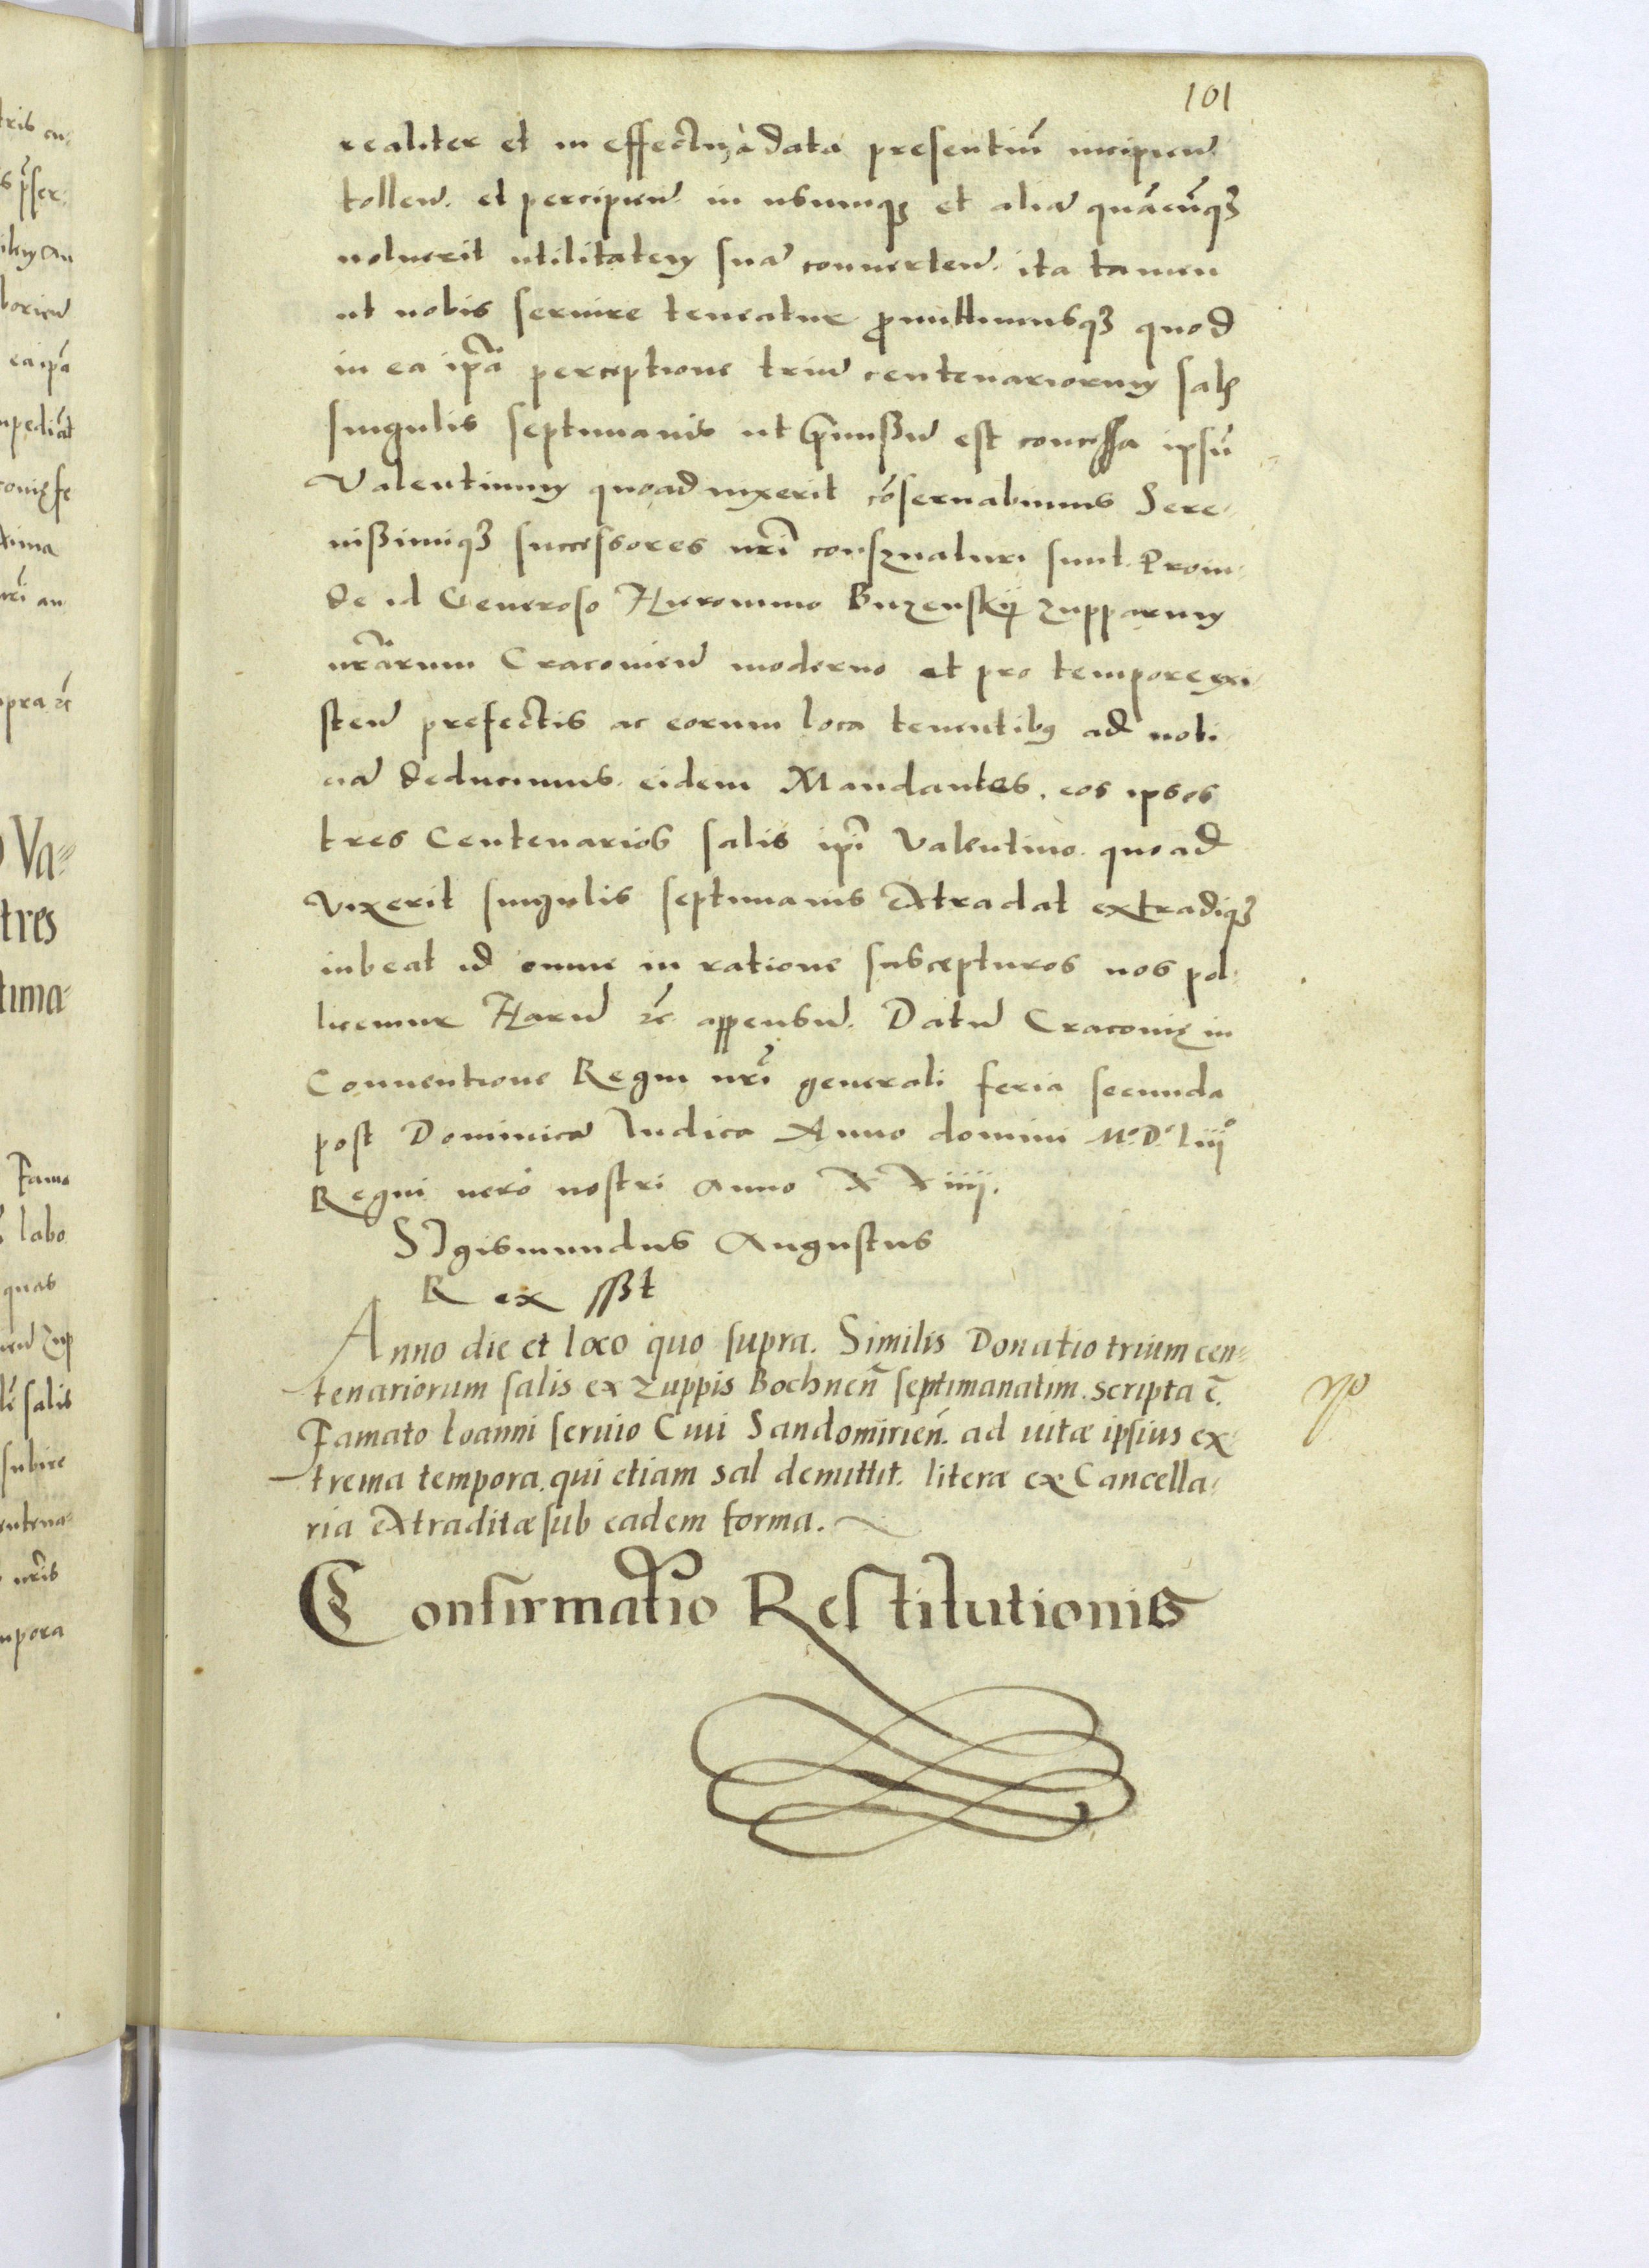 101
realiter et in effectu, à data presentiũ incipien̄
tollen̄. et percipien̄ in usumqȝ et aliā quãcũqȝ
uoluerit utilitatem suā conuerten̄. ita tamen
ut nobis seruire teneatur ꝓmittimusqȝ quod
in ea ip̃a perceptione triū centenariorum salis
singulis septimanis ut p̄missū est concessa ipsũ
Valentinum quoad uixerit cõseruabimus Sere-
nißimiqȝ successores nr̃i conseruaturi sunt. Proin-
de id Generoso Hieronimo Buzenskij zupparum
nr̃arum Cracouien̄ moderno et pro tempore exi-
sten̄ prefectis ac eorum loca tenentibus ad noti-
ciā deducimus. eidem Mandantes. eos ipsos
tres Centenarios salis ip̃i Valentino. quoad
vixerit singulis septimanis extradat extradiqȝ
iubeat id omne in ratione suscepturos nos pol-
licemur Harū ꝛc̃ appensū. Datū Cracouię in
Conuentione Regni nr̃i generali feria secunda
post Dominicā Iudica Anno domini Mº. Dº. Liijº
Regni uero nostri Anno XXiiij.
SIgismundus Augustus
Rex sst
Anno die et loco quo supra. Similis Donatio trium cen-
tenariorum salis ex Zuppis Bochnen̄ septimanatim. scripta ẽ.
Famato Ioanni seruio Ciui Sandomirien̄. ad uitæ ipsius ex-
trema tempora. qui etiam sal demittit. literæ ex Cancella-
ria extraditæ sub eadem forma.
Confirmatio Restitutionis
tris cu-
borien̄
ea ip̃a
nr̃i an
Va-
tres
tima-
Famo
labo
quas
salis
subire
entena-
nr̃is
mpora